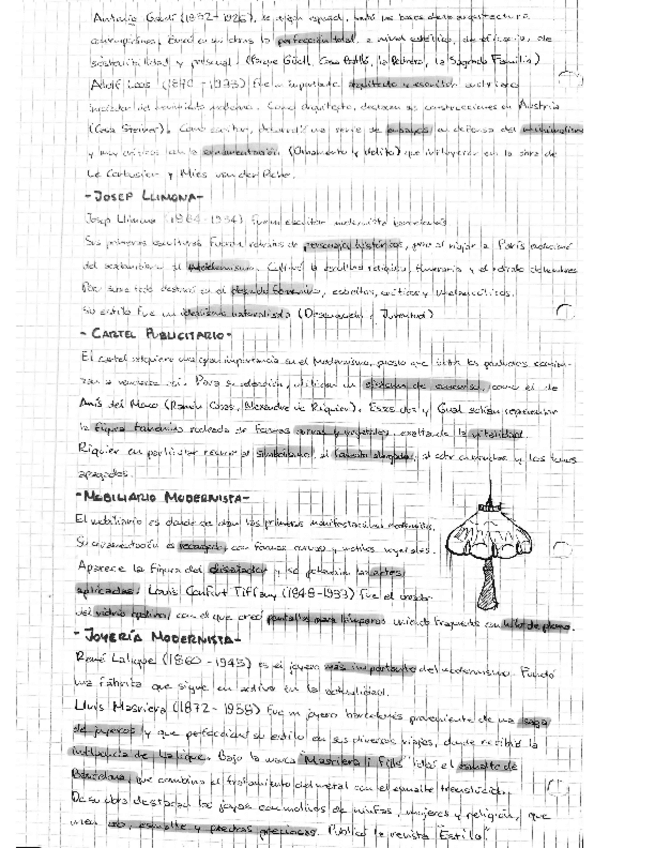 Antonio Gaudí (1852-1926), de origen español, sentó las bases de la arquitectura
contemporánea. En su obra la perfección total, a nivel estético, de
sostenibilidad y personal. (Parque Güell, Casa Batlló, la Pedrera, la Sagrada Familia)
Adolf Loos (1870-1933) fue un importante arquitecto y escritor austríaco
iniciador del movimiento moderno. Como arquitecto, destacan sus construcciones en Austria
(Casa Steiner). Como escritor, una serie de ensayos en defensa del
y muy críticos con la ornamentación (Ornamento y delito) que influyeron en la obra de
Le Corbusier y Mies van der Rohe.
-JOSEP LLIMONA-
Josep Llimona (1864-1934) fue un escultor modernista
Sus primeras esculturas fueron retratos de personajes históricos, pero al viajar a París
del al modernismo. Cultivó la escultura religiosa, funeraria y el retrato
Por
Su estilo fue un idealismo naturalista (Desconsuelo y Juventud)
-CARTEL PUBLICITARIO-
El cartel adquiere una gran importancia en el Modernismo, puesto que
Para su elección, utilizan un sistema de concurso, como el de
Anís del Mono (Ramón Casas, Alexandre de Riquer). Estos dos y Gual solían representar
la figura femenina rodeada de formas curvas y vegetales, exaltando la
Riquer en particular recurre al simbolismo, al formato alargado, al y los tonos
apagados.
-MOBILIARIO MODERNISTA-
El mobiliario es donde se dan las primeras manifestaciones modernistas.
Su ornamentación es recargada, con formas curvas y motivos vegetales.
Aparece la figura del diseñador y se potencian las artes
aplicadas. Louis Confort Tiffany (1848-1933) fue el creador
del vidrio opalino, con el que creó pantallas para lámparas uniendo fragmentos con hilo de plomo.
-JOYERÍA MODERNISTA-
René Lalique (1860-1945) es el joyero más importante del modernismo. Fundó
una fábrica que sigue en activo en la actualidad.
Lluís Masriera (1872-1958) fue un joyero barcelonés proveniente de una saga
de joyeros y que perfeccionó su estilo en sus diversos viajes, donde recibió la
influencia de Lalique. Bajo la marca "Masriera i Fills" ideó el esmalte de
Barcelona, que combina el tratamiento del metal con el esmalte translúcido.
De su obra destacan las joyas con motivos de ninfas, mujeres y religión, que
unen oro, esmalte y piedras preciosas. Publicó la revista "Estilo".